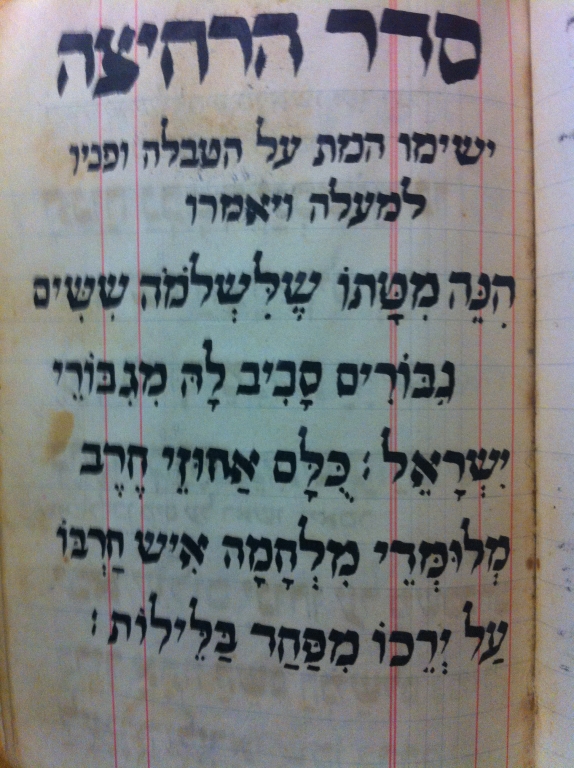 סדר הרחיצה
ישימו המת על הטבלה ופניו
למעלה ויאמרו
הִנֵּה מִטָּתוֹ שֶׁלִּשְׁלֹמֹה שִׁשִּׁים
גִּבּוֹרִים סָבִיב לָהּ מִגִּבּוֹרֵי
יִשְׂרָאֵל : כֻּלָּם אַחוּזֵי חֶרֶב
מְלוּמְּדֵי מִלְחָמָה אִישׁ חַרְבּוֹ
עַל יְרֵכוֹ מִפַּחַד בַּלֵּילוֹת :